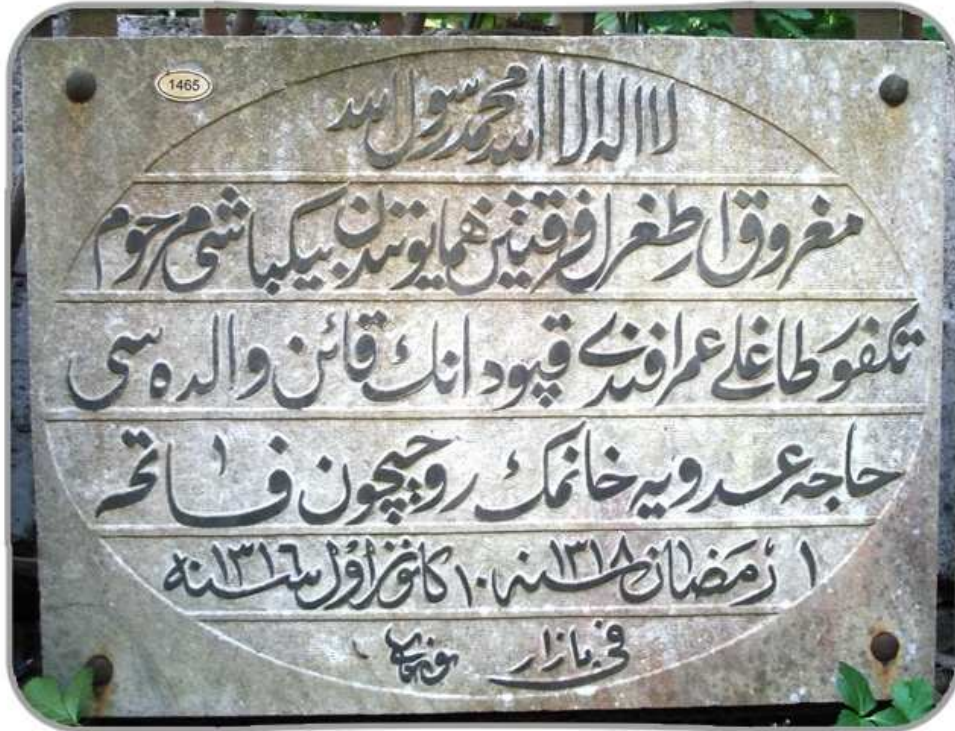 1465
لا اله الا الله محمد رسول الله
مغروق ارطغرل فرقتين همايونندن بيكباشى مرحوم
تكفور طاغلى عمر افندى قپودانك قائن والده سى
حاجه عدويه خانمك روحيچون فاتحه
١ رمضان سنه ١٣١٨ ١٠ كانون اول سنه ١٣١٦
فى بازار